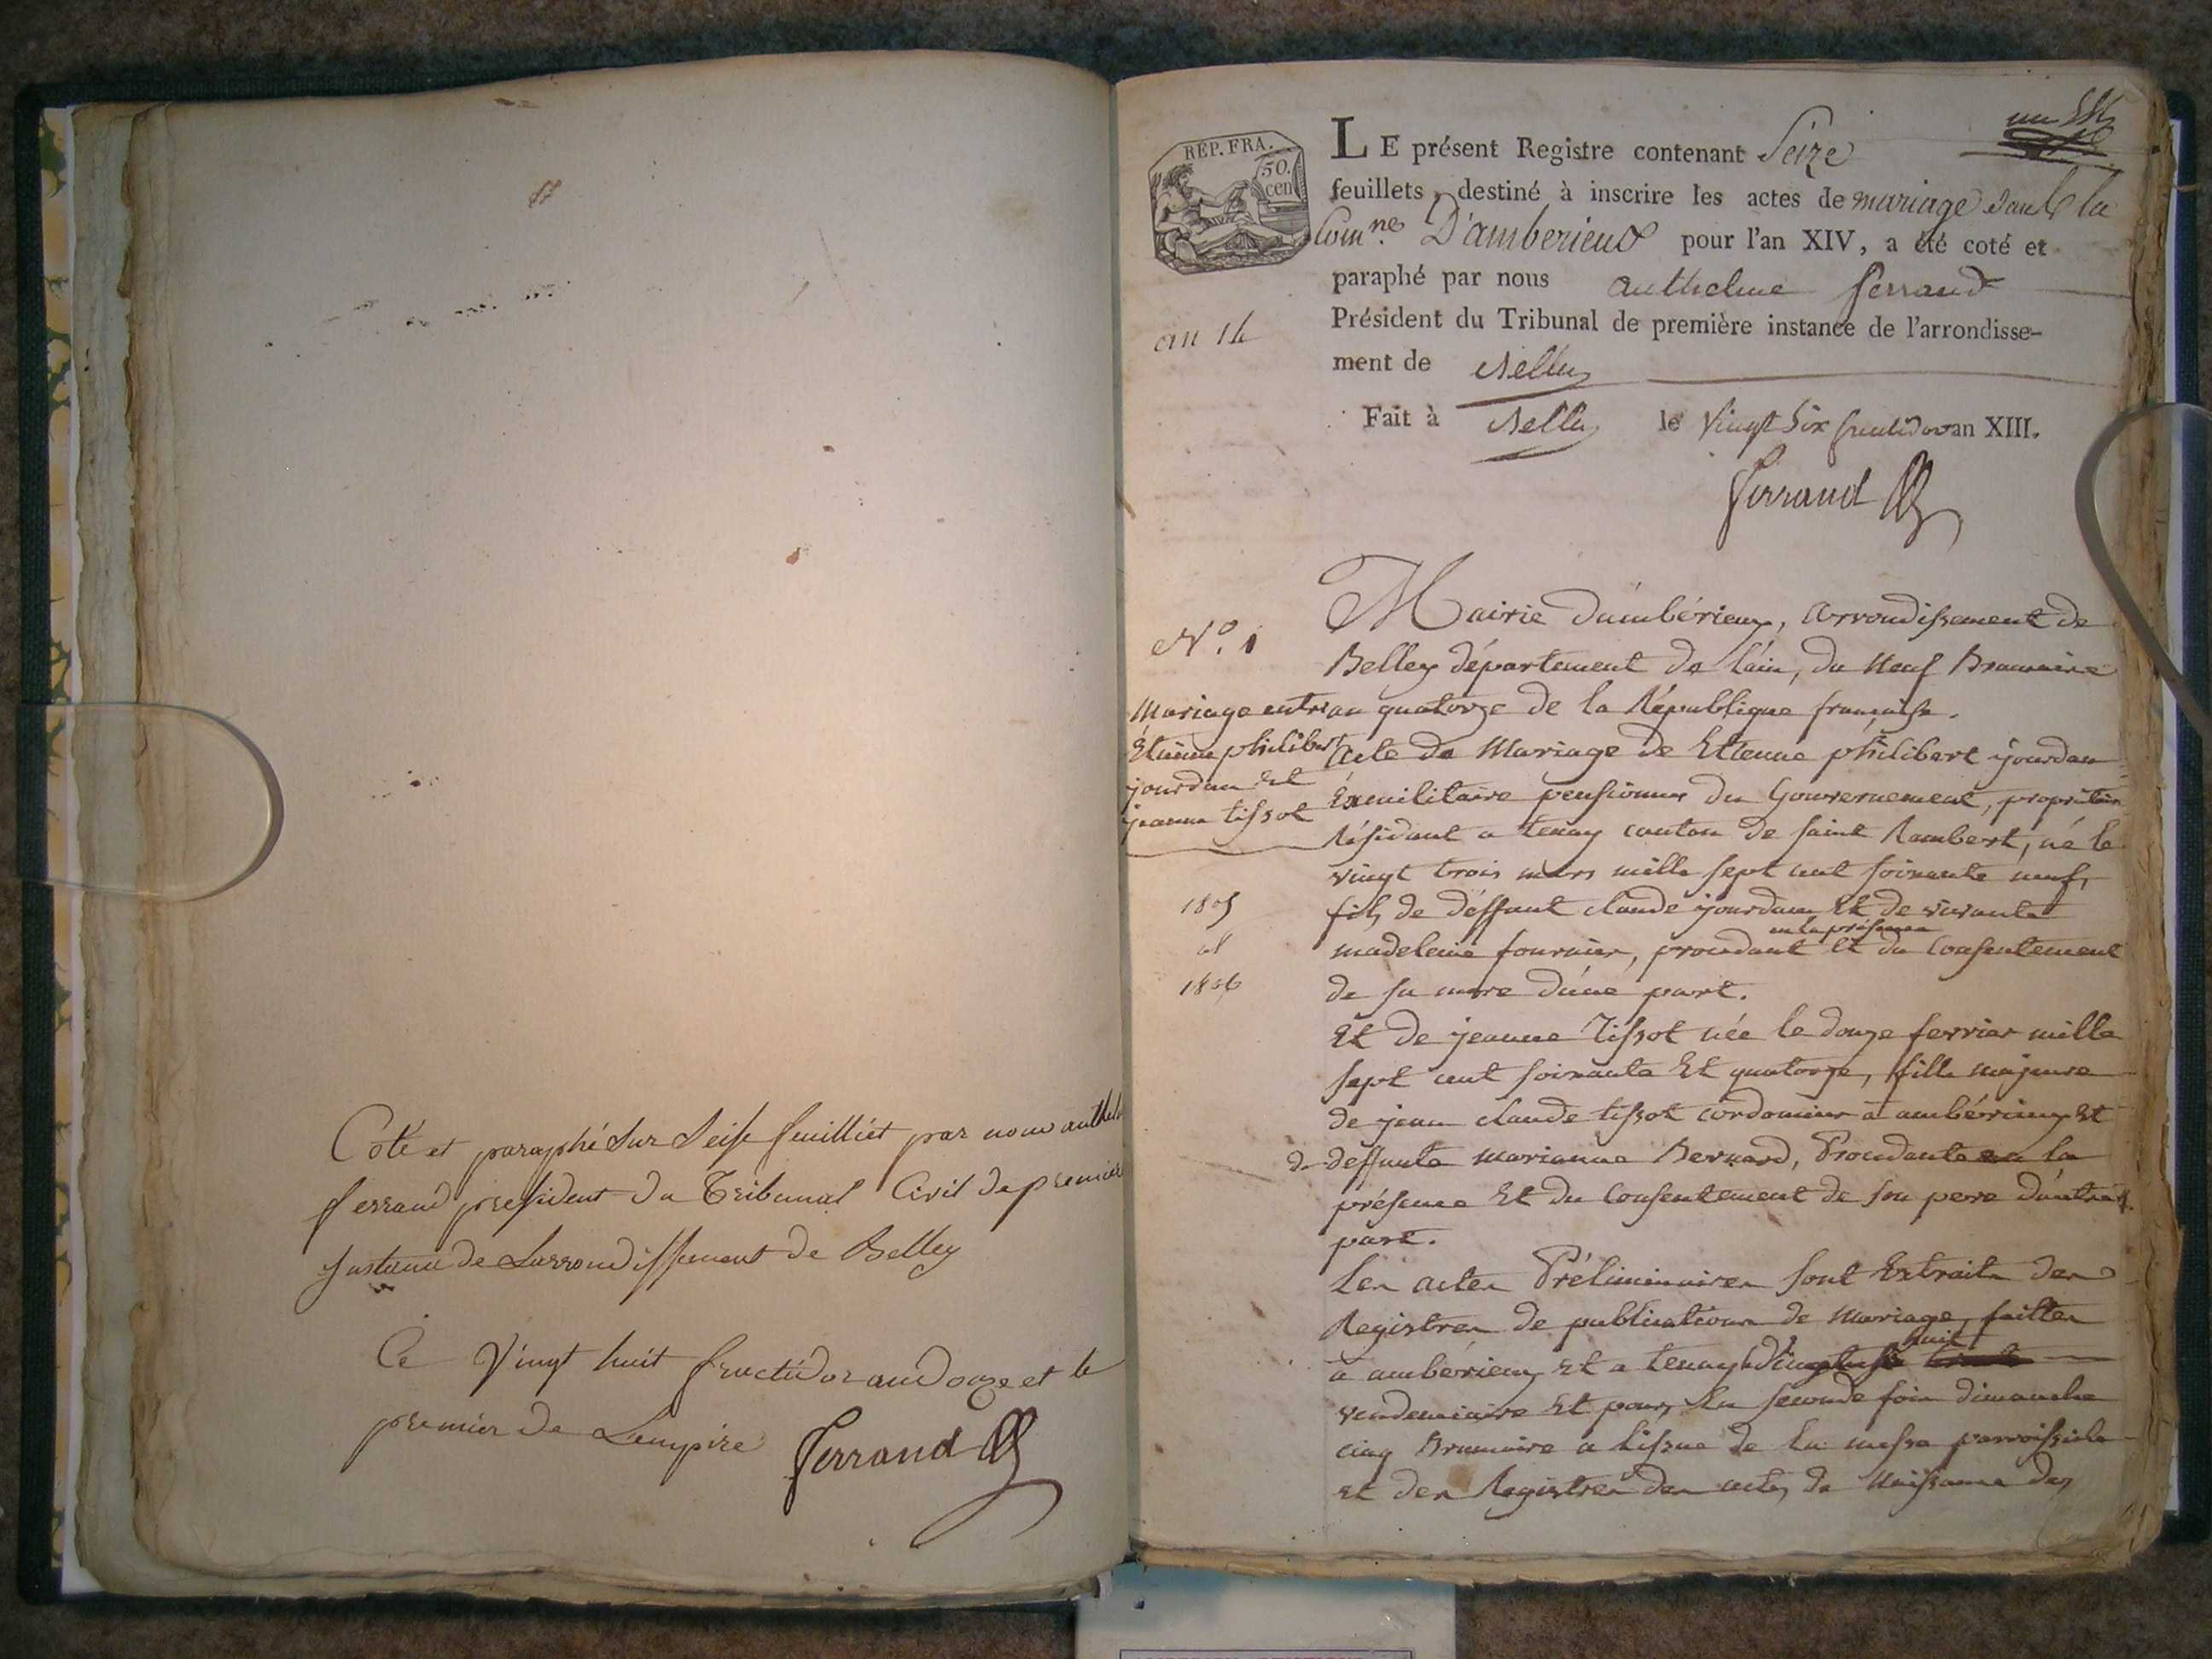 Coté et paraphé sur Seise feuilliet par nous anthel
ferrand president du Tribunal Civil de premiere
Instance de Larrondissement de Belley
Ce Vingt huit fructidor an douze et le
premier de Lempire
Ferrand
REP. FRA.
50.
cen
LE présent Registre contenant Seize
feuillets, destiné à inscrire les actes de mariage dans la
Com.ne D'amberieux pour l'an XIV, a été coté et
paraphé par nous anthelme ferrand
Président du Tribunal de première instance de l'arrondisse-
ment de Belley
Fait à Belley le Vingt Six fructidor an XIII.
Ferrand
an 14
N.o 1
Mariage entre
Etienne philibert
jourdan et
jeanne tissot
1805
et
1806
Mairie d'ambérieux, arrondissement de
Belley département de l'ain, du Neuf Brumaire
an quatorze de la République française.
Acte de Mariage de Etienne philibert jourdan
Exmilitaire pensionné du Gouvernement, propriétaire
Résidant a tenay canton de saint Rambert, né le
vingt trois mars mille sept cent soixante neuf,
fils de déffunt claude jourdan et de vivante
madeleine fournier, procedant en la présence et du Consentement
de sa mere d'une part.
Et de jeanne Tissot née le douze fevrier mille
sept cent soixante et quatorze, fille majeure
de jean claude tissot cordonnier à ambérieux et
de deffunte marianne Bernard, Procedante en la
présence et du Consentement de son pere d'autre
part.
Les actes Préliminaires sont Extraits des
Registres de publications de Mariage, faittes
à ambérieux et a tenay huit
vendemiaire et pour la seconde fois dimanche
cinq Brumaire a l'issue de la messe parroissiale
et des Registres des actes de Naissance des